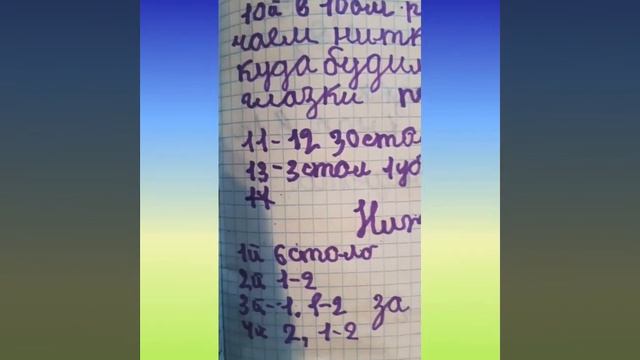 10й в 10ом р
чаем нитк
куда будим
глазки п
11-12 30сто
13-3стол 1уб
Ниж
1й 6столб
2й 1-2
3й-1, 1-2 за
4й 2, 1-2